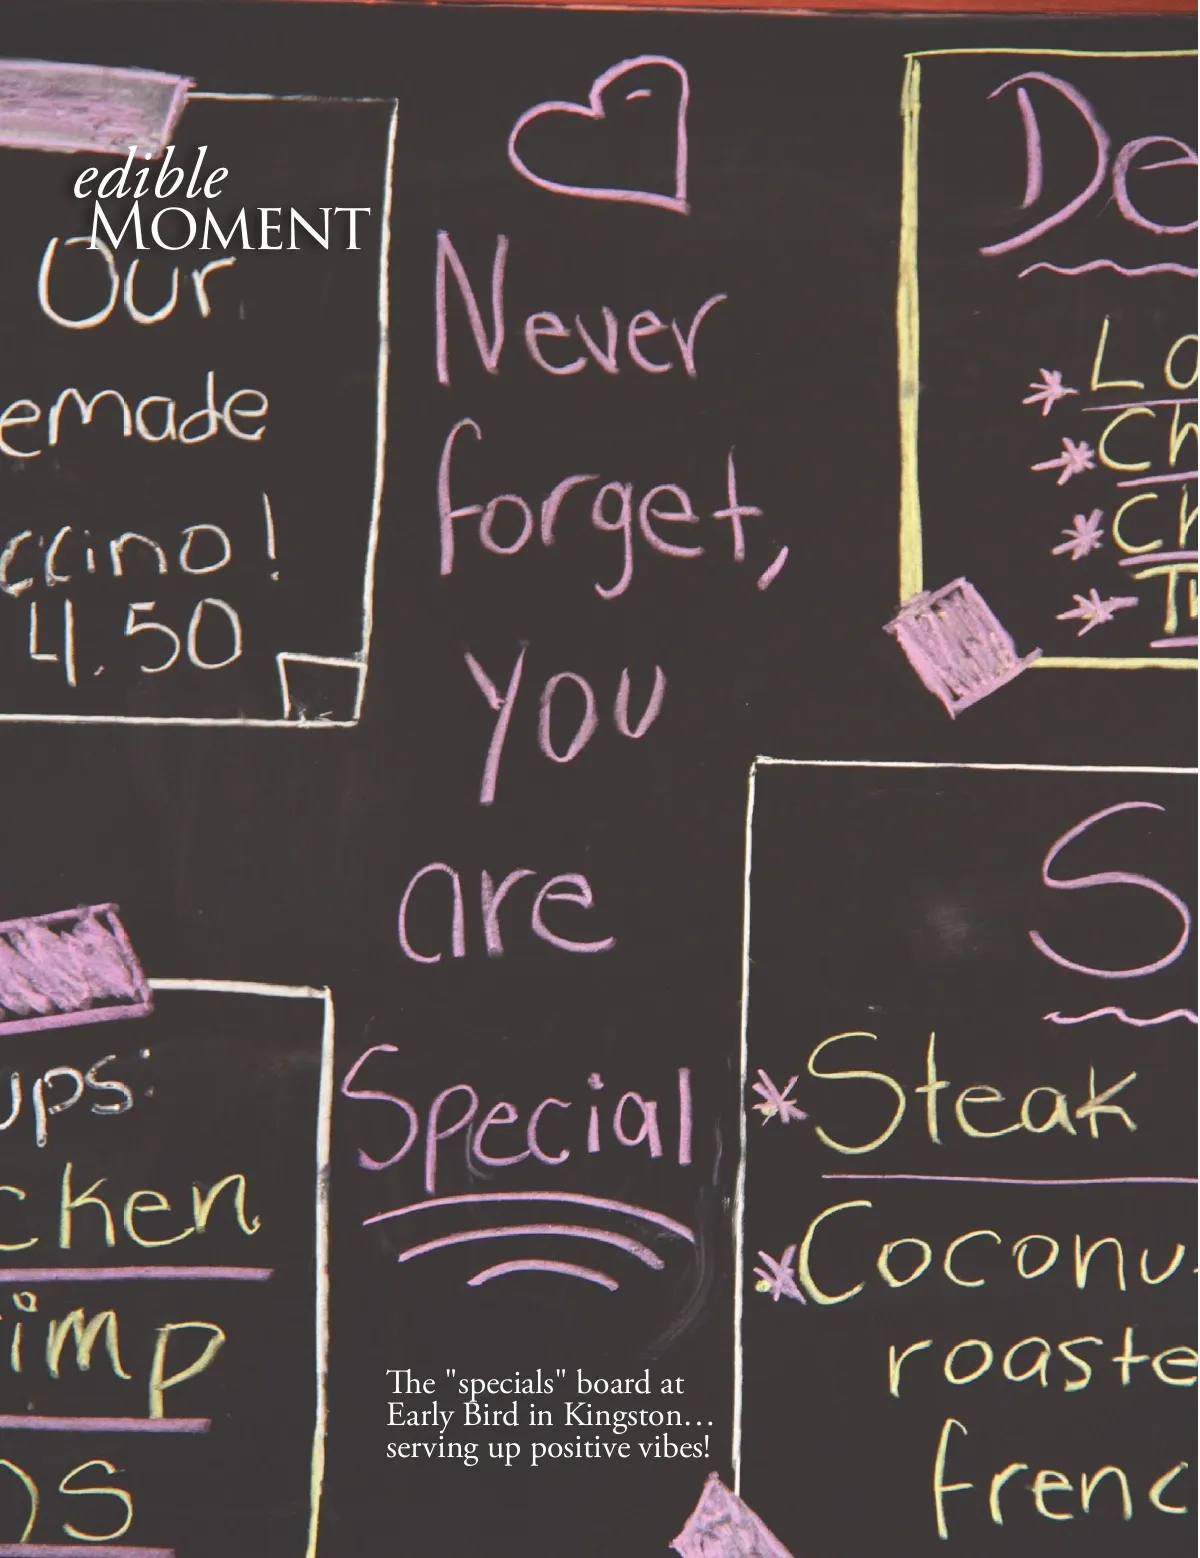 edible
MOMENT
Our
emade
ccino!
4.50
Never
forget,
you
are
Special
De
Lo
Ch
Ch
S
*Steak
*Coconu
roaste
frenc
ups:
cken
imp
S
The "specials" board at
Early Bird in Kingston…
serving up positive vibes!